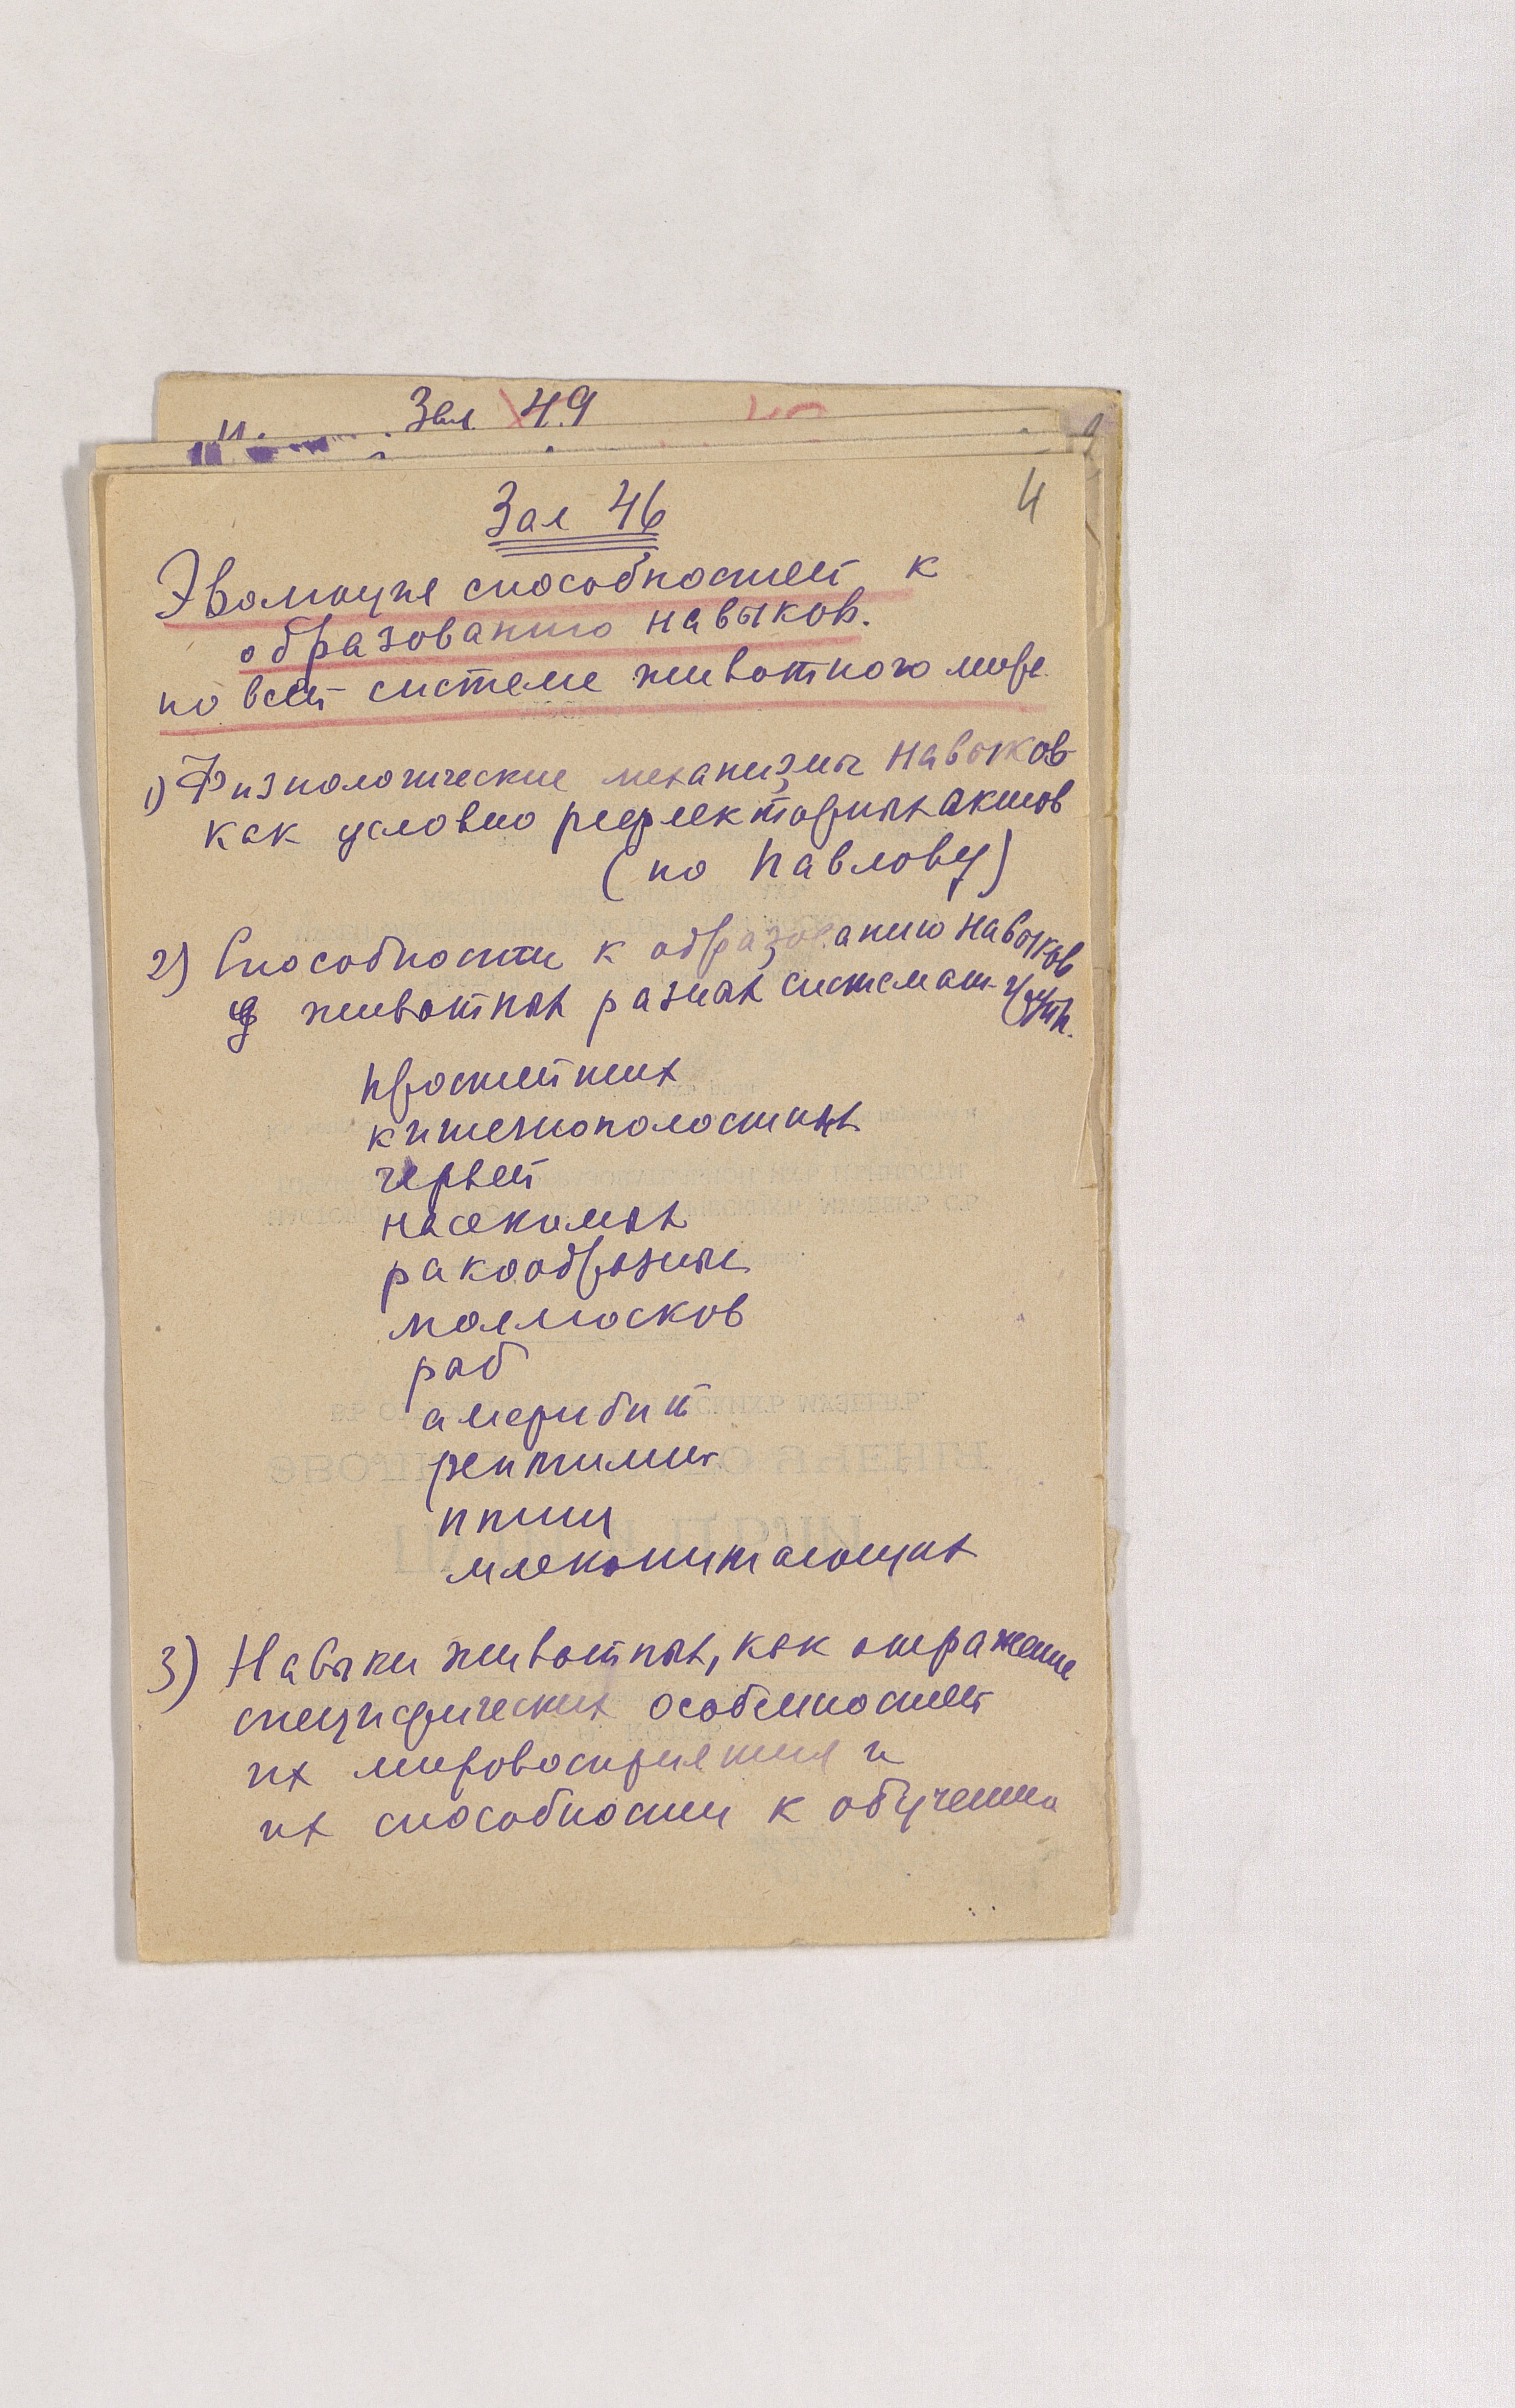 Зал 49
Зал 46
4
Эволюция способностей к
образованию навыков.
по всей системе животного мира
1) Физиологические механизмы навыков
как условно рефлекторных актов
(по Павлову)
2) Способности к образованию навыков
у животных разных системат. групп.
простейших
кишечнополостных
червей
насекомых
ракообразных
моллюсков
рыб
амфибий
рептилий
птиц
млекопитающих
3) Навыки животных, как отражение
специфических особенностей
их мировосприятия и
их способности к обучению